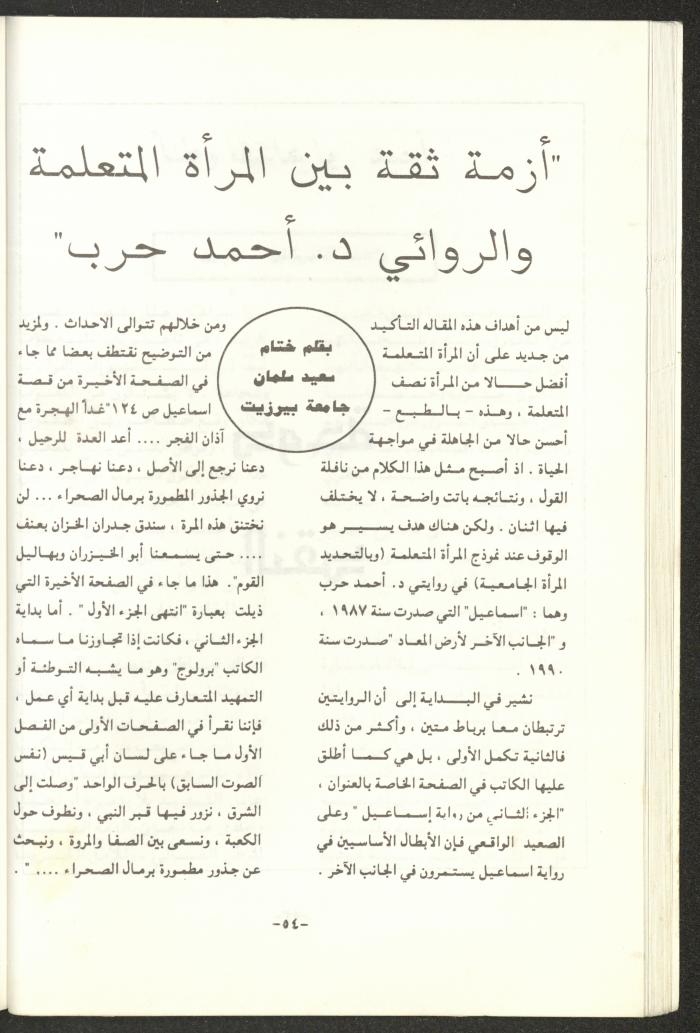 "أزمة ثقة بين المرأة المتعلمة
والروائي د. أحمد حرب"
بقلم ختام
سعيد سلمان
جامعة بيرزيت
ليس من أهداف هذه المقاله التأكيد
من جديد على أن المرأة المتعلمة
أفضل حالا من المرأة نصف
المتعلمة ، وهذه - بالطبع -
أحسن حالا من الجاهلة في مواجهة
الحياة . اذ أصبح مثل هذا الكلام من نافلة
القول ، ونتائجه باتت واضحة ، لا يختلف
فيها اثنان . ولكن هناك هدف يسير هو
الوقوف عند نموذج المرأة المتعلمة (وبالتحديد
المرأة الجامعية) في روايتي د. أحمد حرب
وهما : "اسماعيل" التي صدرت سنة ١٩٨٧ ،
و "الجانب الآخر لأرض المعاد "صدرت سنة
١٩٩٠ .
نشير في البداية إلى أن الروايتين
ترتبطان معا برباط متين ، وأكثر من ذلك
فالثانية تكمل الأولى ، بل هي كما أطلق
عليها الكاتب في الصفحة الخاصة بالعنوان ،
"الجزء الثاني من رواية إسماعيل " وعلى
الصعيد الواقعي فإن الأبطال الأساسيين في
رواية اسماعيل يستمرون في الجانب الآخر .
ومن خلالهم تتوالى الاحداث . ولمزيد
من التوضيح نقتطف بعضا مما جاء
في الصفحة الأخيرة من قصة
اسماعيل ص ١٢٤ "غداً الهجرة مع
آذان الفجر .... أعد العدة للرحيل ،
دعنا نرجع إلى الأصل ، دعنا نهاجر ، دعنا
نروي الجذور المطمورة برمال الصحراء ... لن
نختنق هذه المرة ، سندق جدران الخزان بعنف
.... حتى يسمعنا أبو الخيزران وبهاليل
القوم". هذا ما جاء في الصفحة الأخيرة التي
ذيلت بعبارة "انتهى الجزء الأول" . أما بداية
الجزء الثاني ، فكانت إذا تجاوزنا ما سماه
الكاتب "برولوج" وهو ما يشبه التوطئة أو
التمهيد المتعارف عليه قبل بداية أي عمل ،
فإننا نقرأ في الصفحات الأولى من الفصل
الأول ما جاء على لسان أبي قيس (نفس
الصوت السابق) بالحرف الواحد "وصلت إلى
الشرق ، نزور فيها قبر النبي ، ونطوف حول
الكعبة ، ونسعى بين الصفا والمروة ، ونبحث
عن جذور مطمورة برمال الصحراء .... " .
-٥٤-